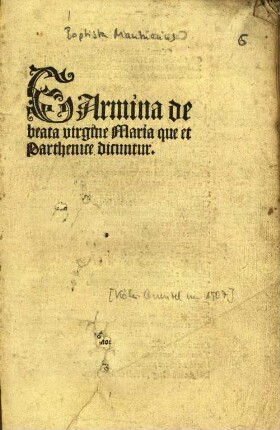 Baptista Mantuanus
6
CArmina de
beata virgine Maria que et
Parthenice dicuntur.
[Köln: Quentel um 1507]